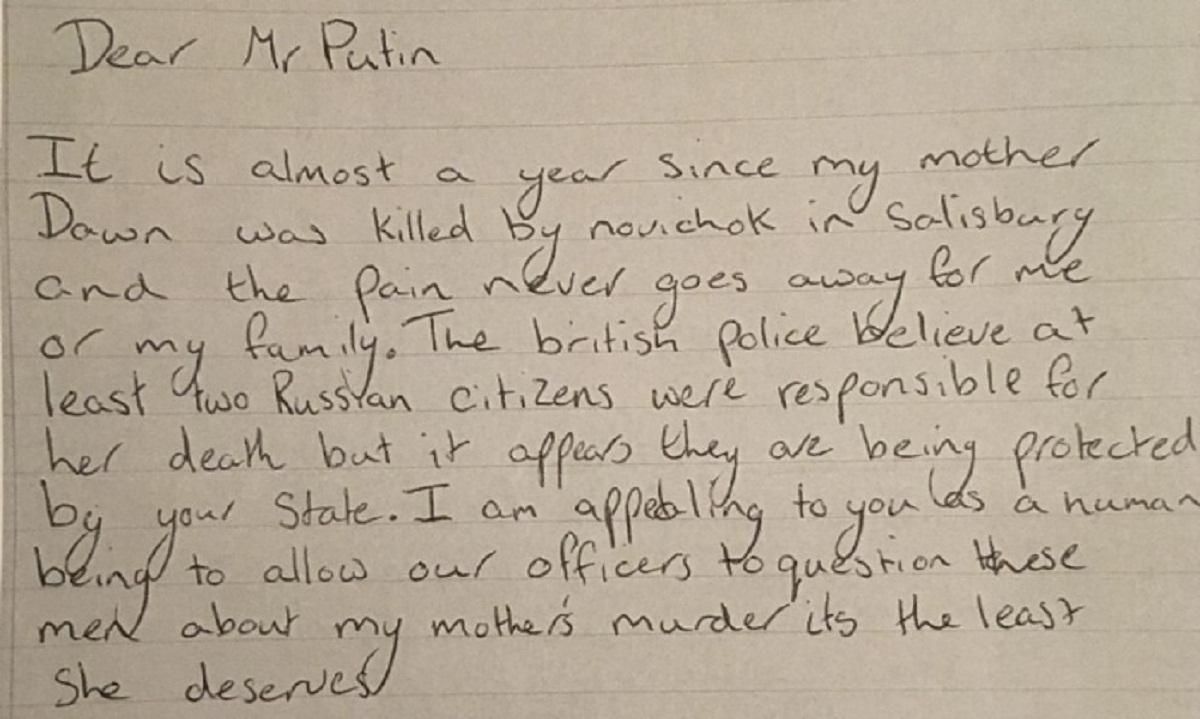 Dear Mr Putin
It is almost a year since my mother
Dawn was killed by novichok in Salisbury
and the pain never goes away for me
or my family. The british police believe at
least two Russian citizens were responsible for
her death but it appears they are being protected
by your State. I am appealing to you as a human
being to allow our officers to question these
men about my mother's murder its the least
She deserves